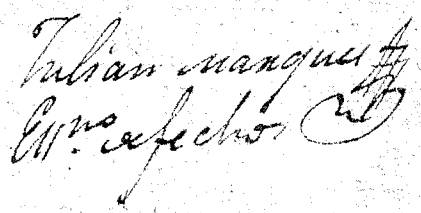 Julian Marques
Essno de fechos